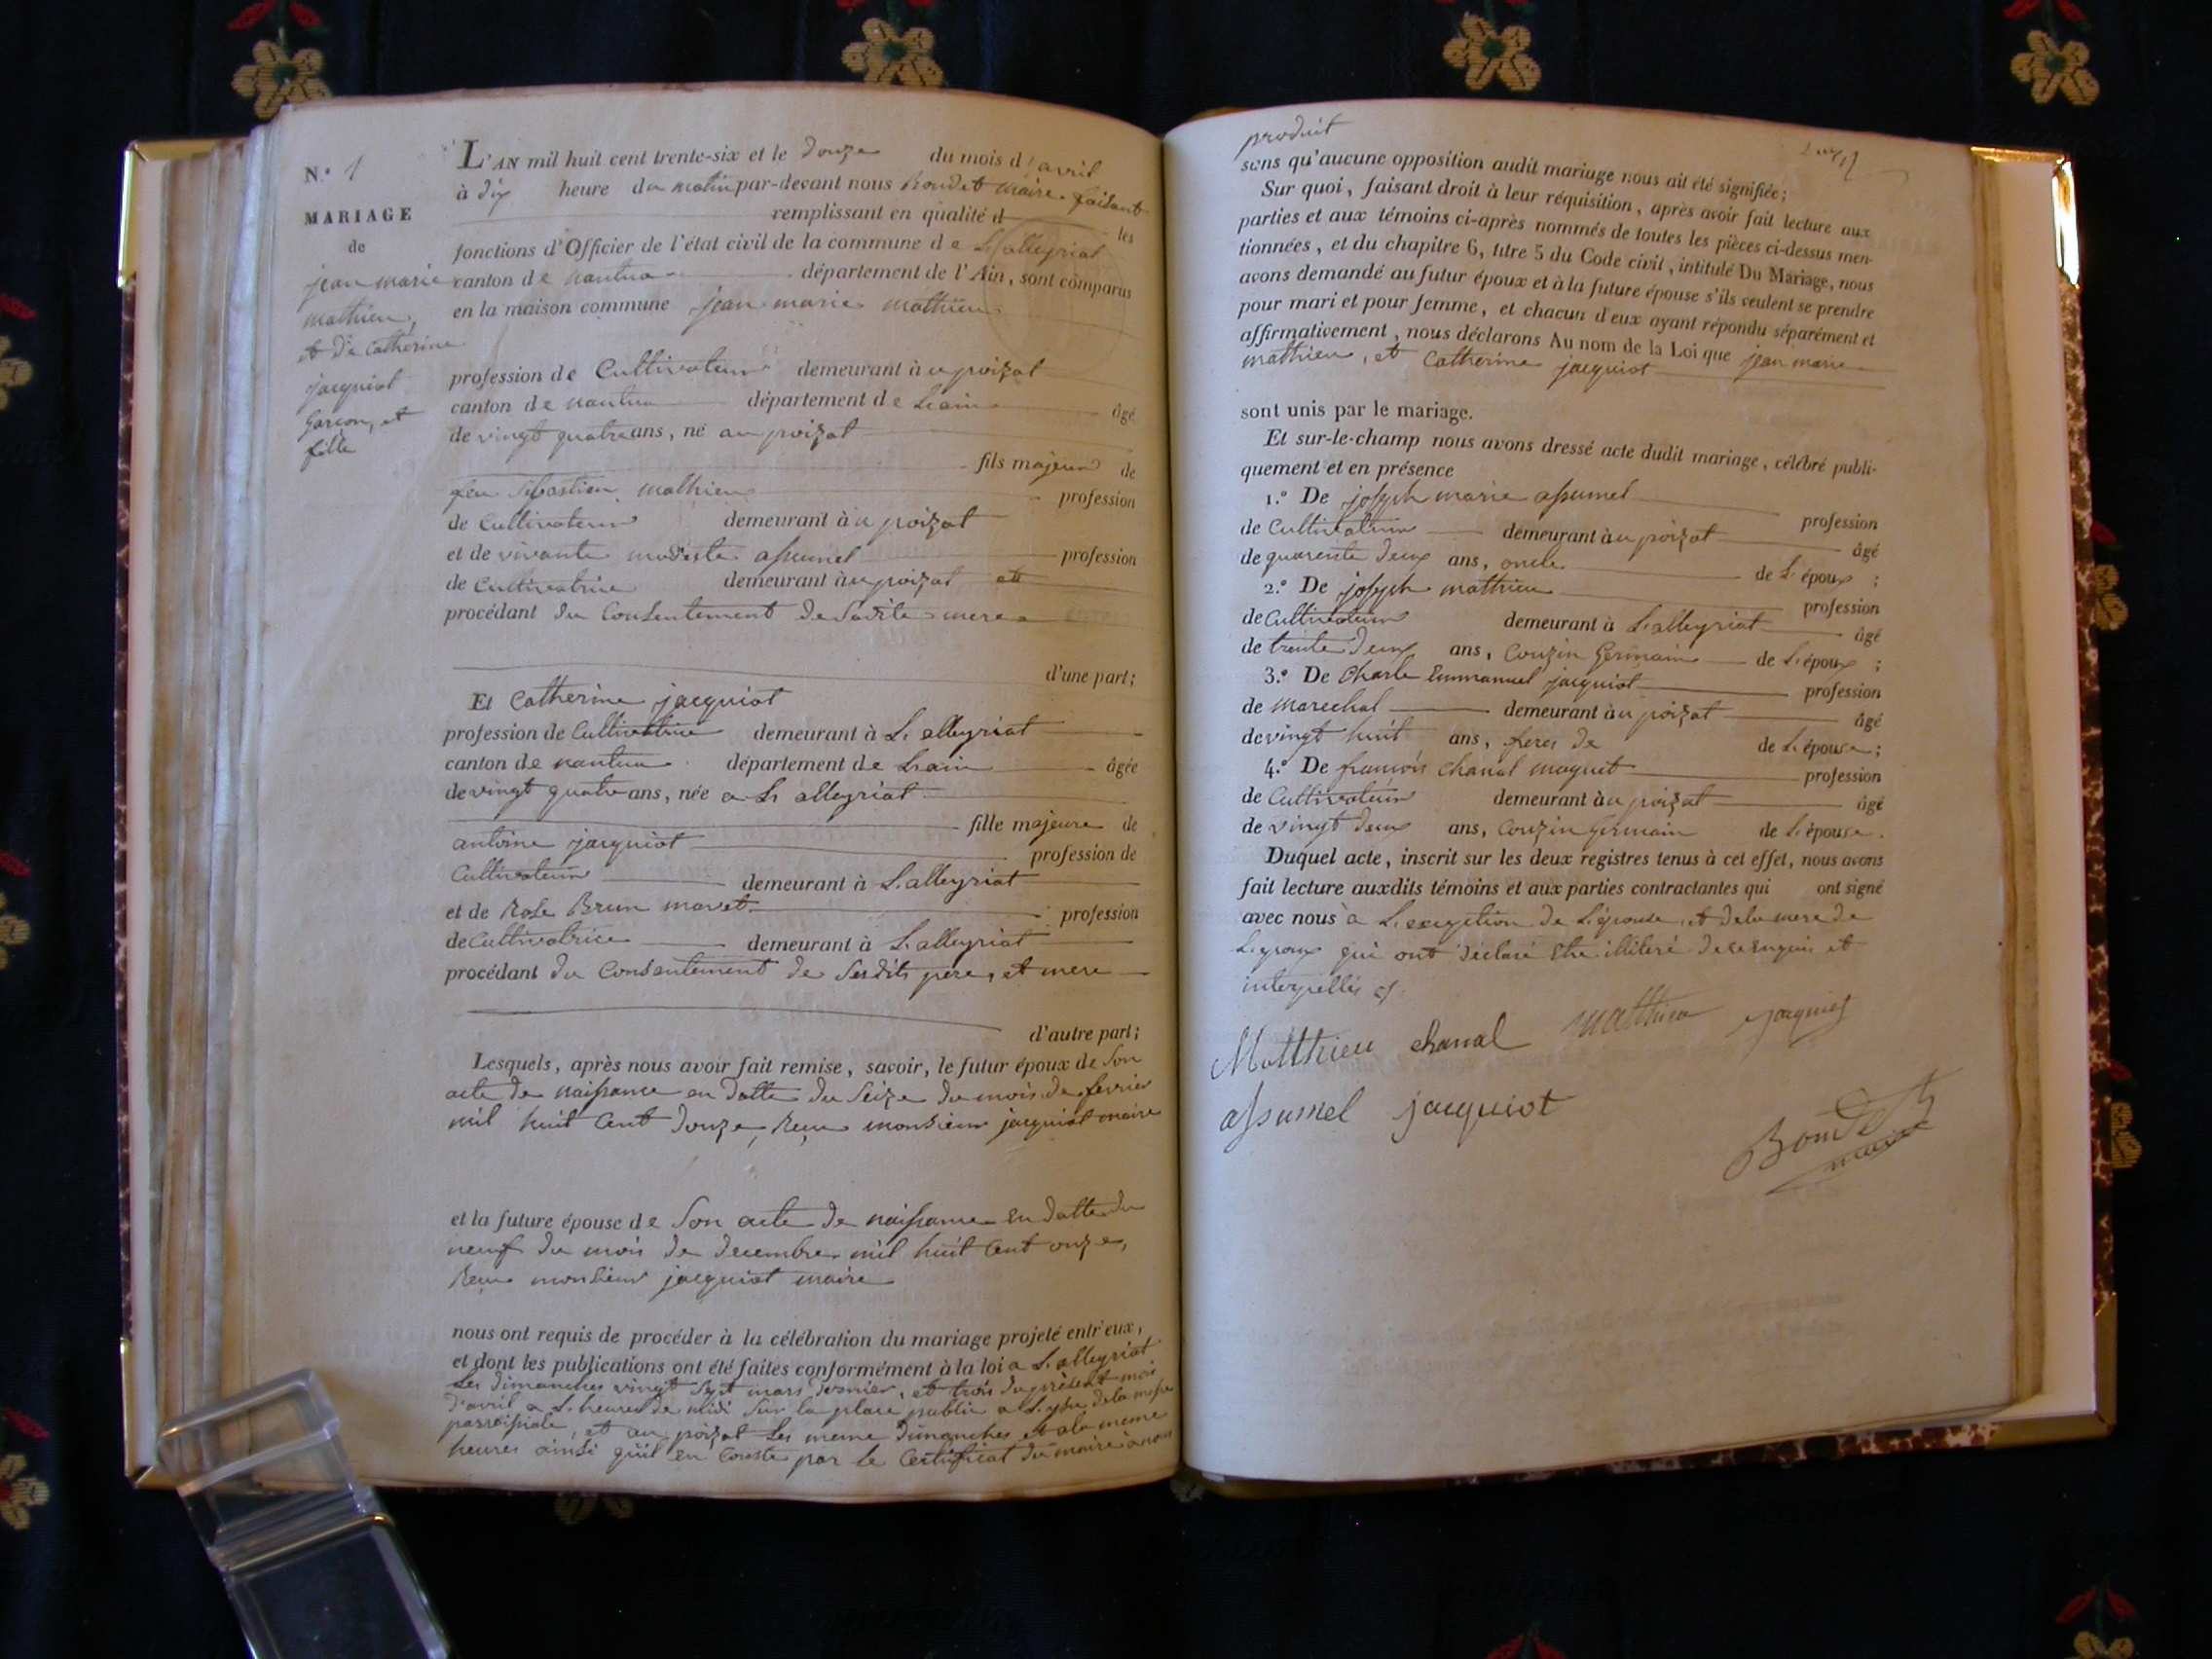 N.° 1
MARIAGE
de
jean marie
mathieu,
et de Catherine
jacquiot
garcon, et
fille
L'AN mil huit cent trente-six et le douze du mois d'avril
à dix heure du matin par-devant nous Bondet maire faisant
remplissant en qualité d les
fonctions d'Officier de l'état civil de la commune de L'alleyriat
canton de nantua département de l'Ain, sont comparus
en la maison commune jean marie mathieu
profession de Cultivateur demeurant à u poizat
canton de nantua département de L'ain âgé
de vingt quatre ans, né au poizat
fils majeur de
feu Sebastien mathieu profession
de Cultivateur demeurant à u poizat
et de vivante modeste assumel profession
de Cultivatrice demeurant à u poizat
procédant du Consentement de Sadite mere
d'une part;
Et Catherine jacquiot
profession de Cultivatrice demeurant à L'alleyriat
canton de nantua département de L'ain âgée
de vingt quatre ans, née a L'alleyriat
fille majeure de
antoine jacquiot profession de
Cultivateur demeurant à L'alleyriat
et de Rose Brun mavet profession
de Cultivatrice demeurant à L'alleyriat
procédant du Consentement de Sesdits pere, et mere
d'autre part;
Lesquels, après nous avoir fait remise, savoir, le futur époux de Son
acte de naissance en datte du Seize du mois de fevrier
mil huit Cent douze, Reçu monsieur jacquiot maire
et la future épouse de Son acte de naissance en datte du
neuf du mois de decembre mil huit Cent onze,
Reçu monsieur jacquiot maire
nous ont requis de procéder à la célébration du mariage projeté entr'eux,
et dont les publications ont été faites conformément à la loi a L'alleyriat
Les dimanches vingt Sept mars dernier, et trois du présent mois
d'avril a L'heure de midi Sur la place public a L'yssu de la messe
parroissiale, et au poizat Les meme dimanches et a la meme
heures ainsi qu'il en Conste par le Certificat du maire a nous
produit
sans qu'aucune opposition audit mariage nous ait été signifiée;
Sur quoi, faisant droit à leur réquisition, après avoir fait lecture aux
parties et aux témoins ci-après nommés de toutes les pièces ci-dessus men-
tionnées, et du chapitre 6, titre 5 du Code civil, intitulé Du Mariage, nous
avons demandé au futur époux et à la future épouse s'ils veulent se prendre
pour mari et pour femme, et chacun d'eux ayant répondu séparément et
affirmativement, nous déclarons Au nom de la Loi que jean marie
mathieu, et Catherine jacquiot
sont unis par le mariage.
Et sur-le-champ nous avons dressé acte dudit mariage, célébré publi-
quement et en présence
1.° De joseph marie assumel profession
de Cultivateur demeurant à u poizat âgé
de quarente deux ans, oncle de L'époux;
2.° De joseph mathieu profession
de Cultivateur demeurant à L'alleyriat âgé
de trente deux ans, Couzin Germain de L'époux;
3.° De Charle Emmanuel jacquiot profession
de Marechal demeurant à u poizat âgé
de vingt huit ans, frere de de L'épouse;
4.° De francois Chanal maguet profession
de Cultivateur demeurant à u poizat âgé
de vingt deux ans, Couzin Germain de L'épouse.
Duquel acte, inscrit sur les deux registres tenus à cet effet, nous avons
fait lecture auxdits témoins et aux parties contractantes qui ont signé
avec nous a L'exception de L'épouse, et de la mere de
L'epoux qui ont déclaré Etre illiteré de ce enquis et
interpellés
Matthieu chanal matthieu jacquiot
assumel jacquiot
Bondet
maire